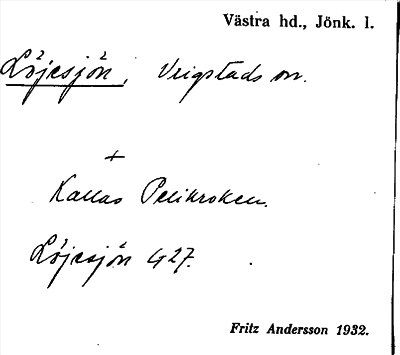 Västra hd., Jönk. l.
Löjesjön, Vrigstads sn.
+
Kallas Pelikroken.
Löjesjön G 27.
Fritz Andersson 1932.